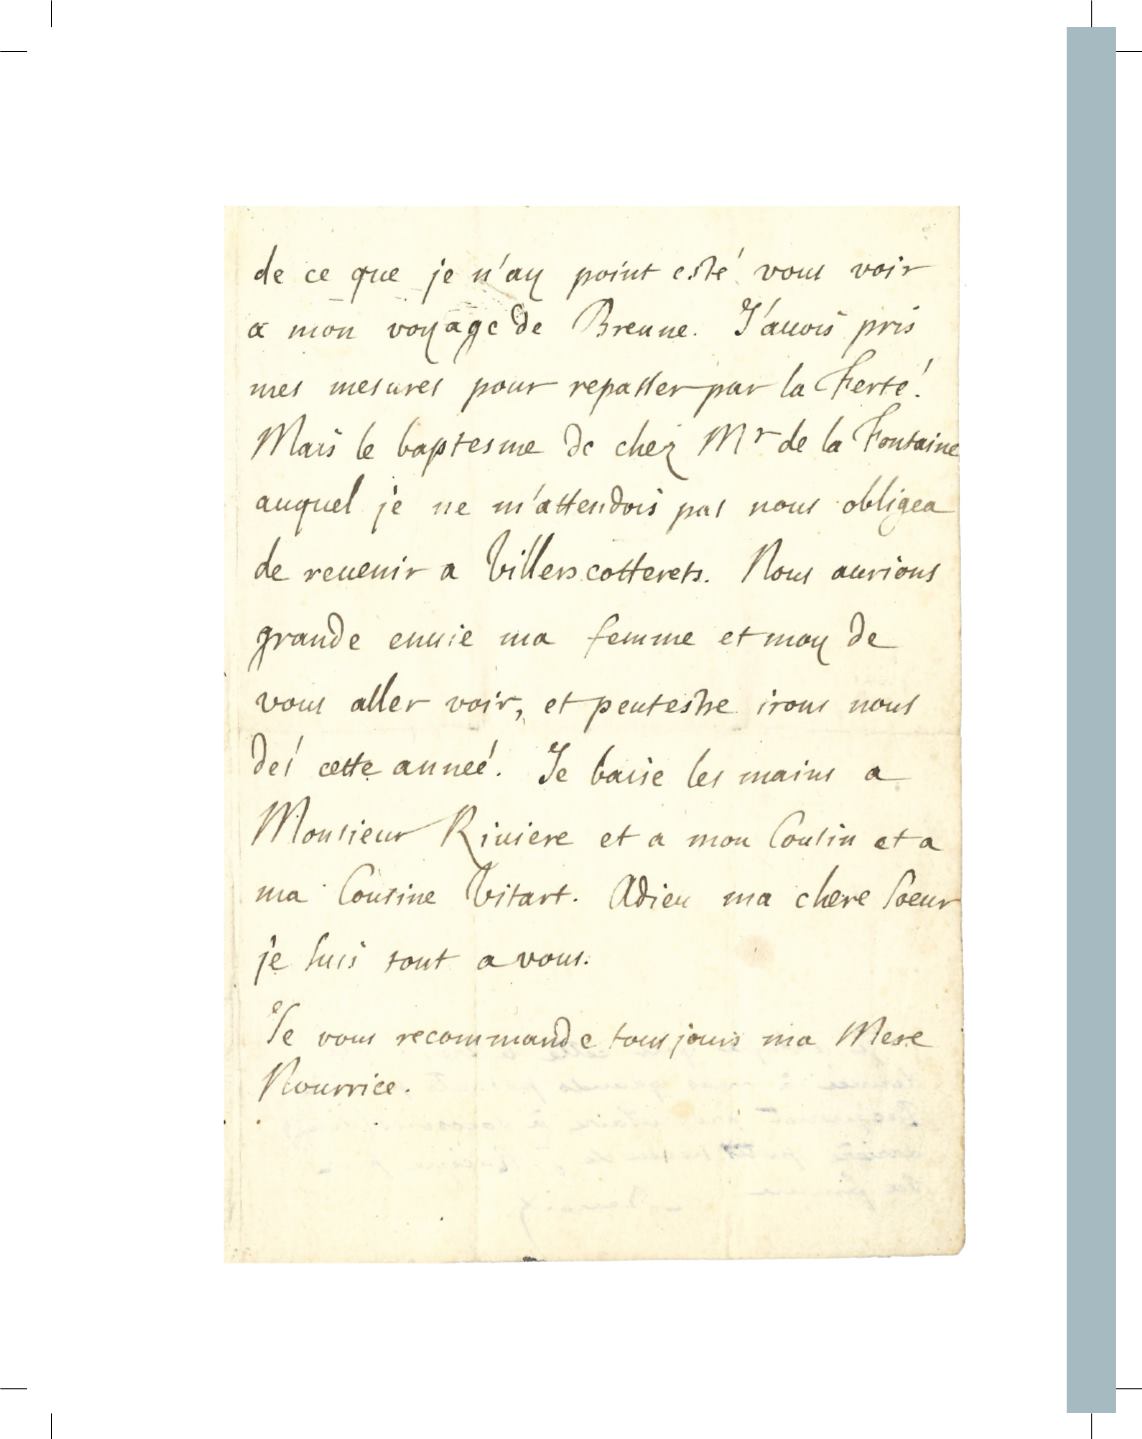 de ce que je n'ay point esté vous voir
a mon voyage de Breune. J'auois pris
mes mesures pour repasser par la Ferté.
Mais le baptesme de chez Mr de la Fontaine
auquel je ne m'attendois pas nous obligea
de reuenir a Villerscotterets. Nous aurions
grande enuie ma femme et moy de
vous aller voir, et peutestre irons nous
dés cette année. Je baise les mains a
Monsieur Riuiere et a mon Cousin et a
ma Cousine Vitart. Adieu ma chere soeur
je suis tout a vous.
Je vous recommande tousjours ma Mere
Nourrice.